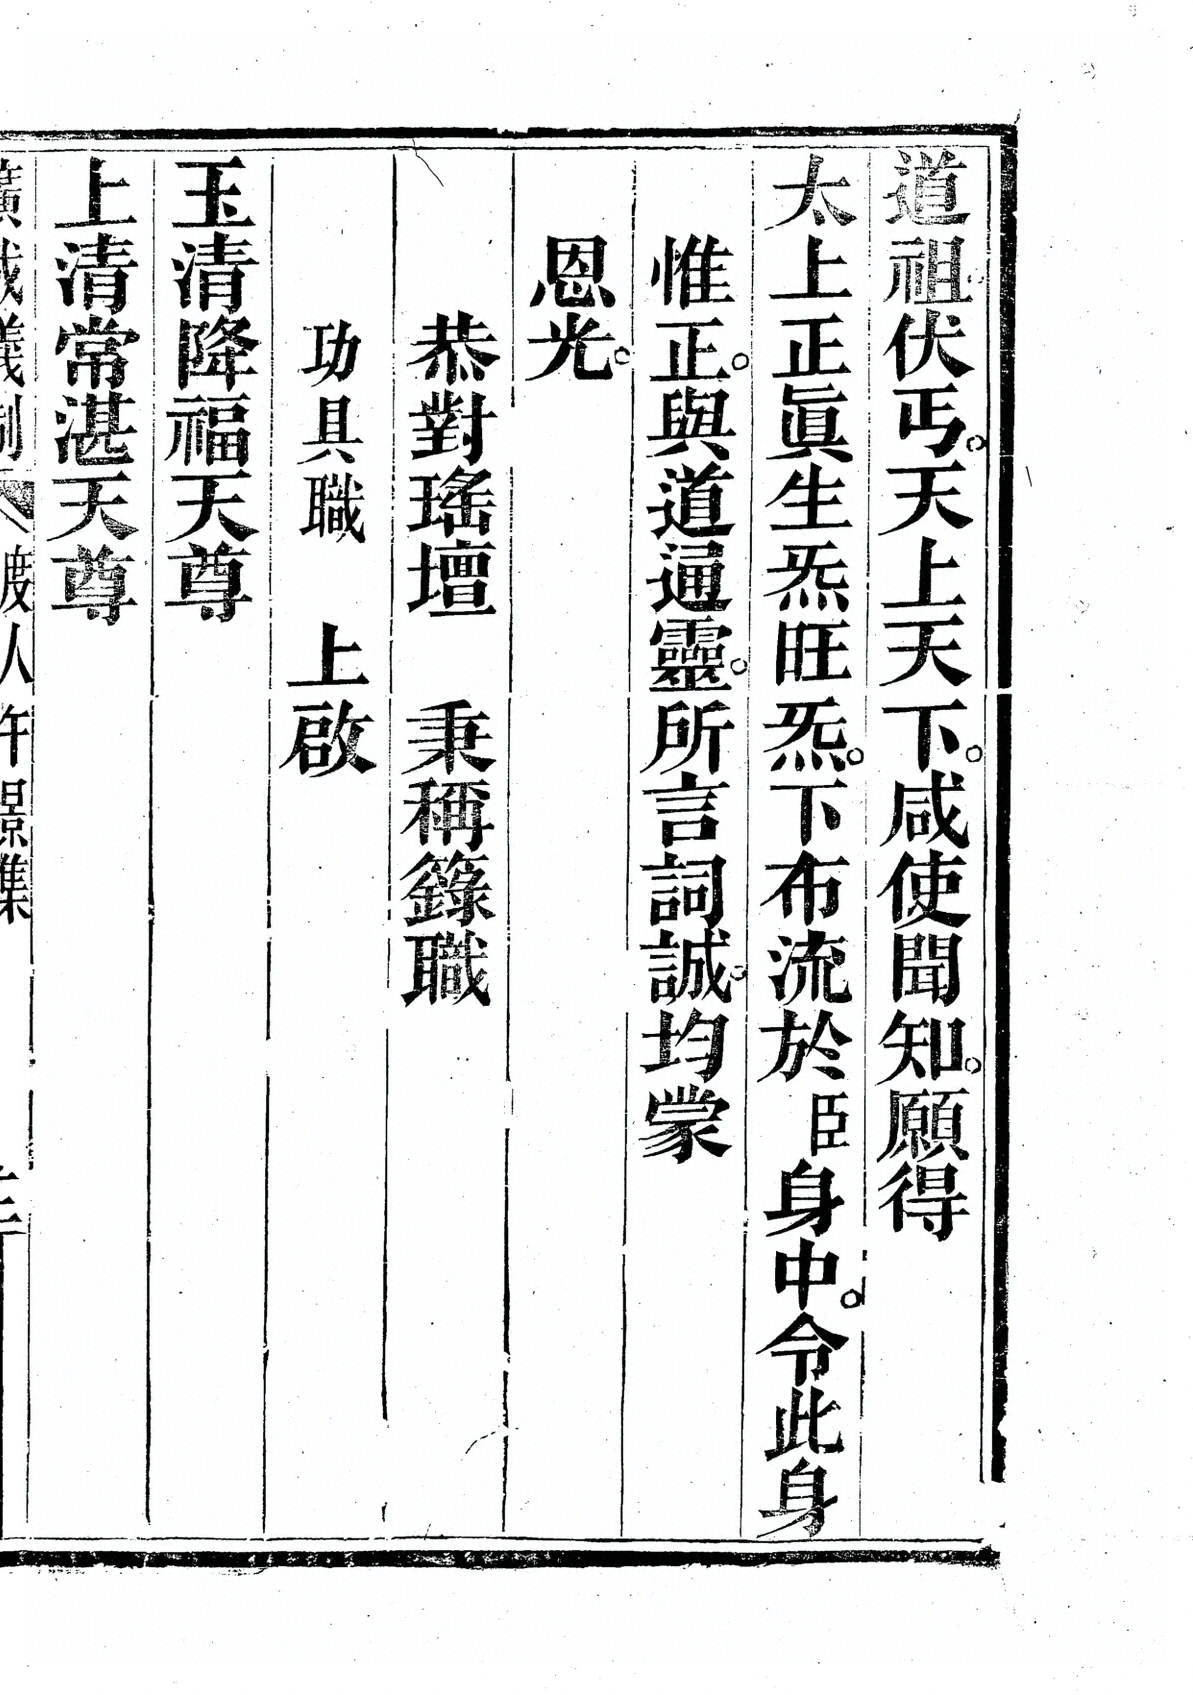 道祖伏丐。天上天下。咸使聞知。願得
太上正眞生炁旺炁。下布流於臣身中。令此身
惟正。與道逼靈。所言詞誠。均蒙
恩光。
恭對瑤壇　秉稱籙職
功具職　上啟
玉清降福天尊
上清常湛天尊
廣成儀制　度人午景集